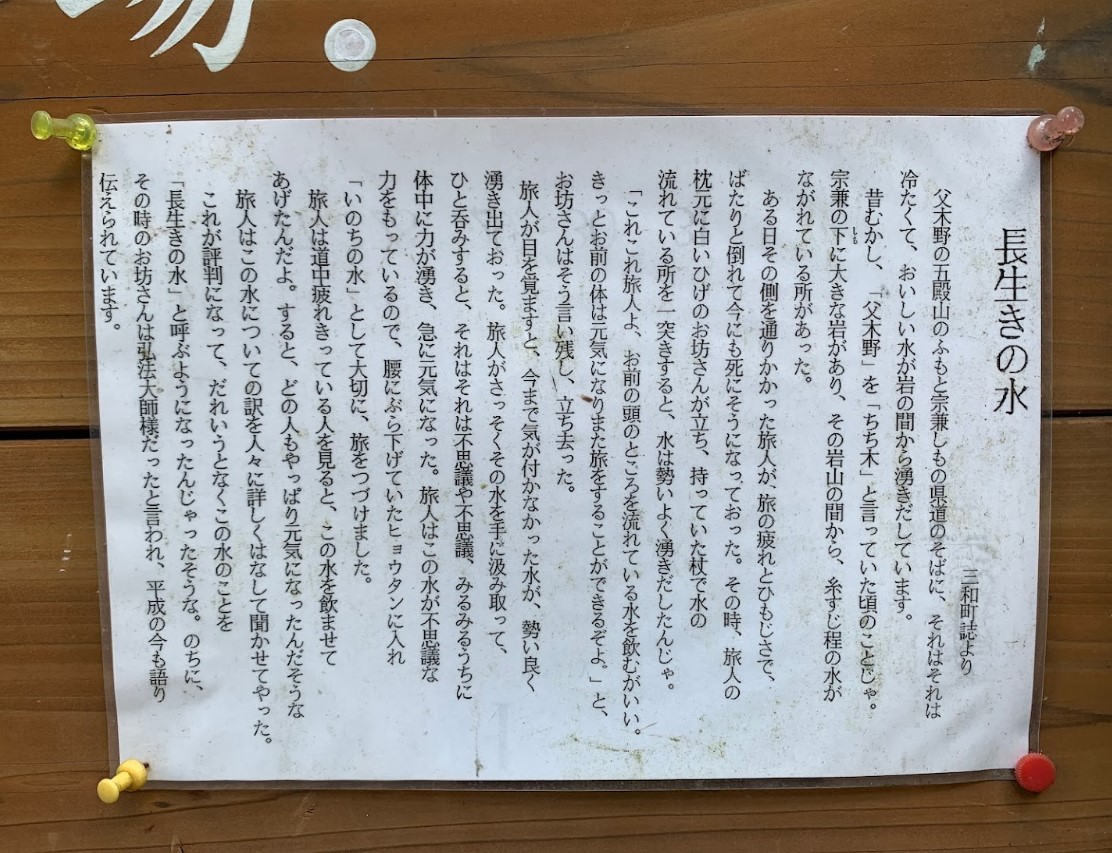 場。
長生きの水
三和町誌より
父木野の五殿山のふもと宗兼しもの県道のそばに、それはそれは
冷たくて、おいしい水が岩の間から湧きだしています。
昔むかし、「父木野」を「ちち木」と言っていた頃のことじゃ。
宗兼の下に大きな岩があり、その岩山の間から、糸すじ程の水が
しも
ながれている所があった。
ある日その側を通りかかった旅人が、旅の疲れとひもじさで、
ばたりと倒れて今にも死にそうになっておった。その時、旅人の
枕元に白いひげのお坊さんが立ち、持っていた杖で水の
流れている所を一突きすると、水は勢いよく湧きだしたんじゃ。
「これこれ旅人よ、お前の頭のところを流れている水を飲むがいい。
きっとお前の体は元気になりまた旅をすることができるぞよ。」と、
お坊さんはそう言い残し、立ち去った。
旅人が目を覚ますと、今まで気が付かなかった水が、勢い良く
湧き出ておった。旅人がさっそくその水を手に汲み取って、
ひと呑みすると、それはそれは不思議や不思議、みるみるうちに
体中に力が湧き、急に元気になった。旅人はこの水が不思議な
力をもっているので、腰にぶら下げていたヒョウタンに入れ
「いのちの水」として大切に、旅をつづけました。
旅人は道中疲れきっている人を見ると、この水を飲ませて
あげたんだよ。すると、どの人もやっぱり元気になったんだそうな
旅人はこの水についての訳を人々に詳しくはなして聞かせてやった。
これが評判になって、だれいうとなくこの水のことを
「長生きの水」と呼ぶようになったんじゃったそうな。のちに、
その時のお坊さんは弘法大師様だったと言われ、平成の今も語り
伝えられています。